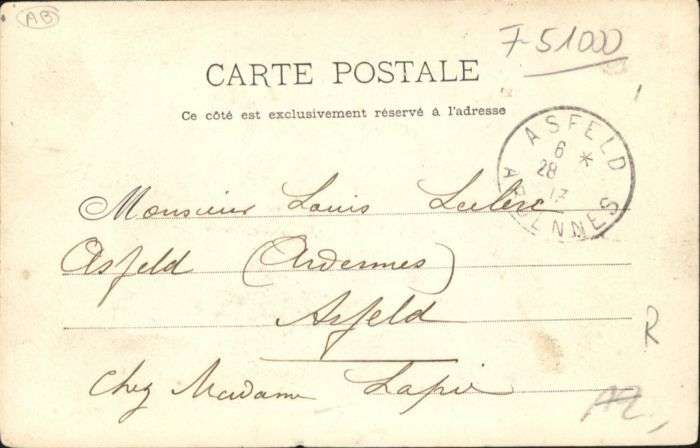 AB
F-51000
CARTE POSTALE
Ce côté est exclusivement réservé à l'adresse
ASFELD
6 *
28
ARDENNES
Monsieur Louis Leclerc
Asfeld (Ardennes)
Asfeld
R
Chez Madame Lapie